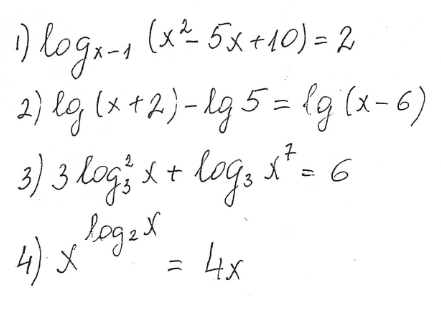 1) log_{x-1} (x² - 5x + 10) = 2
2) lg (x + 2) - lg 5 = lg (x - 6)
3) 3 log₃² x + log₃ x⁷ = 6
4) x^{log₂ x} = 4x